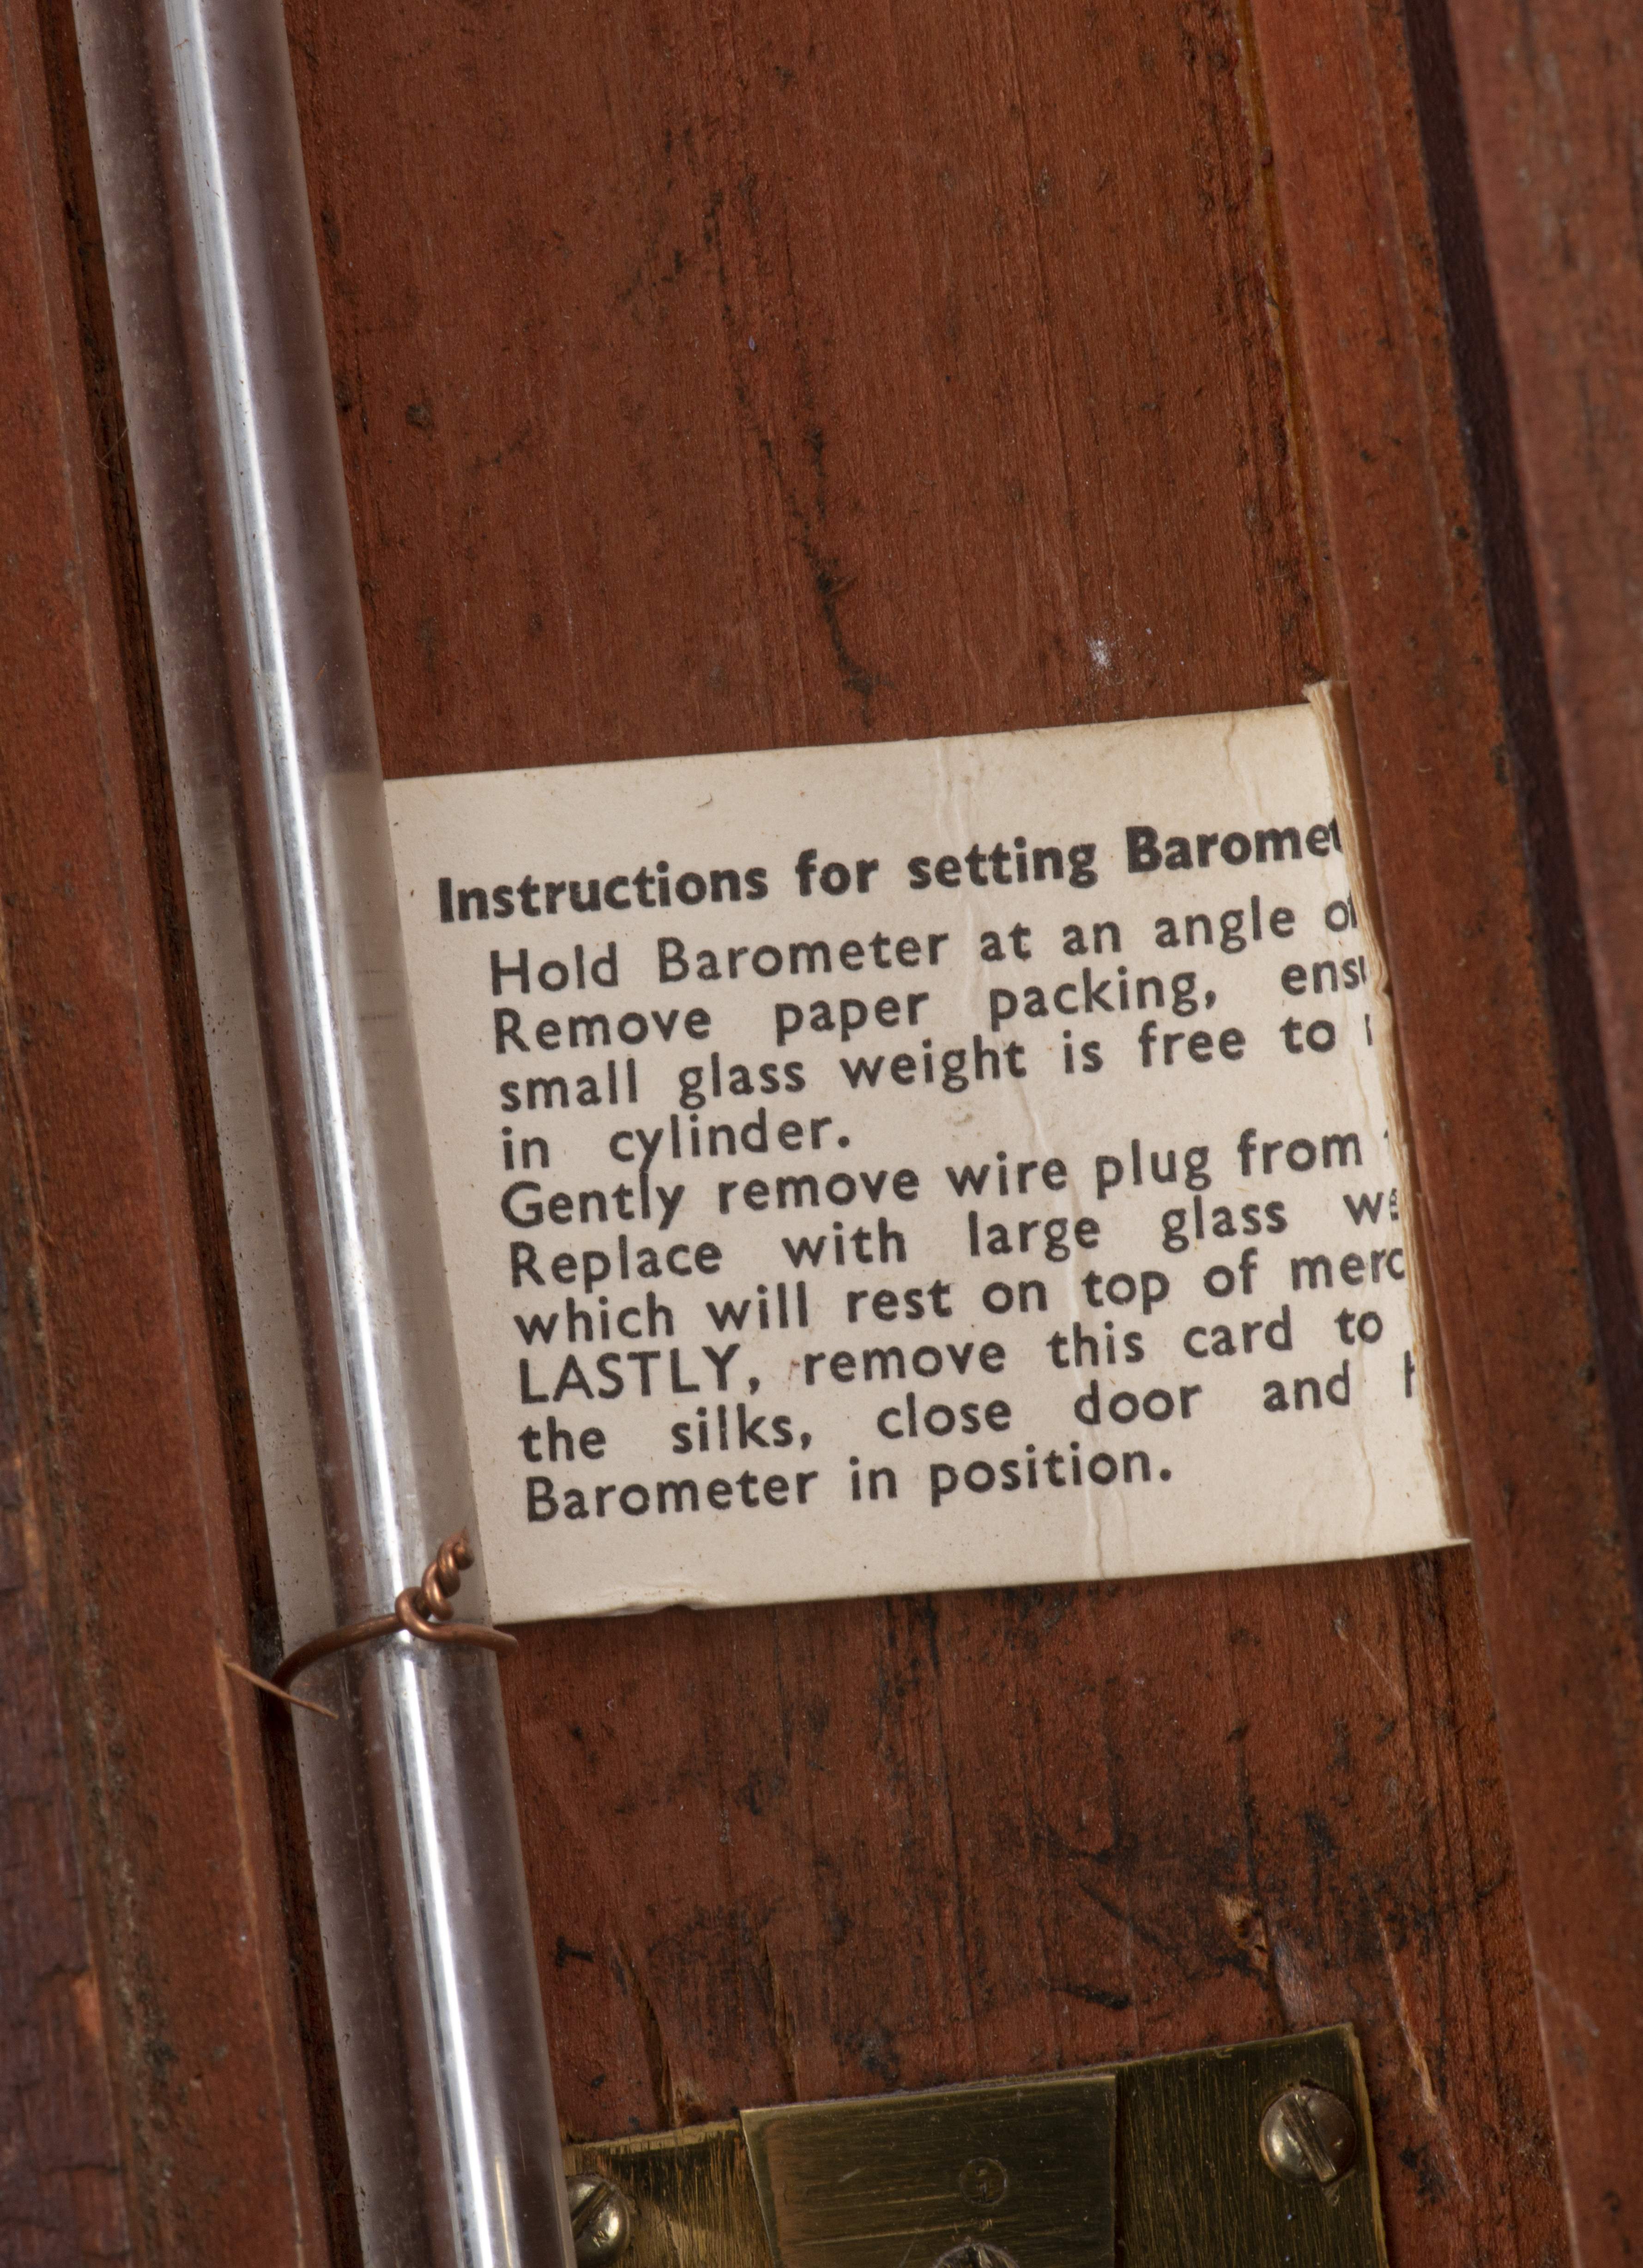 Instructions for setting Baromet
Hold Barometer at an angle of
Remove paper packing, ensu
small glass weight is free to
in cylinder.
Gently remove wire plug from
Replace with large glass we
which will rest on top of merc
LASTLY, remove this card to
the silks, close door and h
Barometer in position.